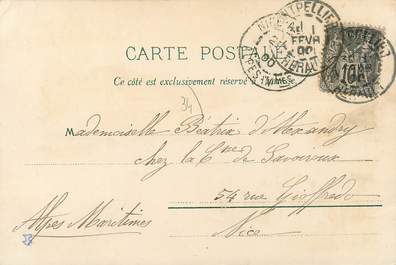 MONTPELLIER
1
FEVR
00
HERAULT
CARTE POSTALE
Ce côté est exclusivement réservé à l'adresse
34
Mademoiselle Béatrix d'Alexandry
chez la Csse de Savoiroux
54 rue Gioffredo
Alpes Maritimes Nice